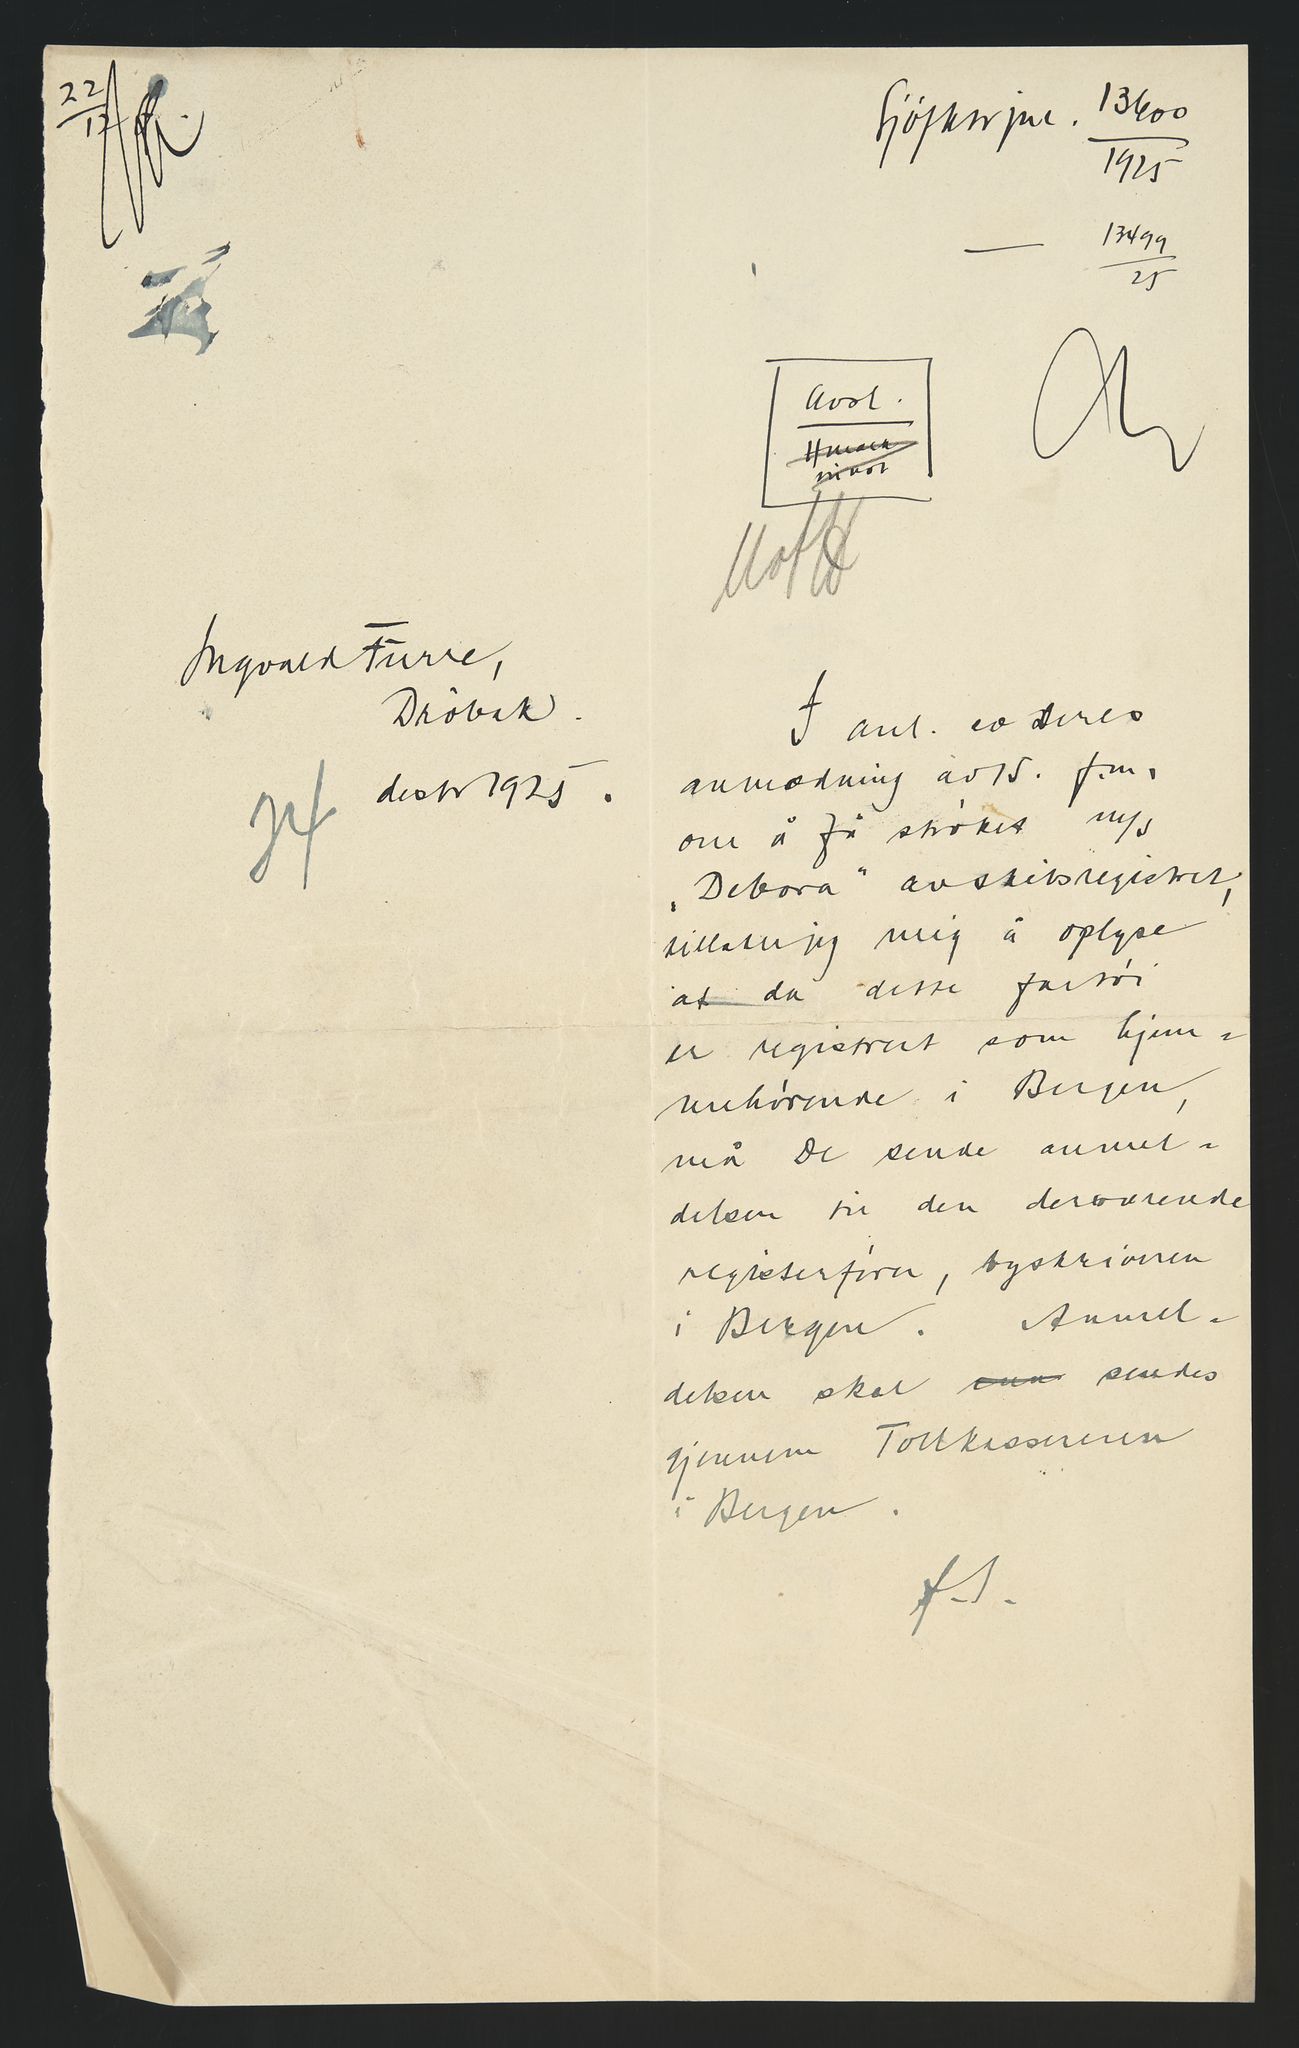 22
12
Sjöfktr jnl. 13600
1925
— 13499
25
Avsl.
Ingvald Furre,
Dröbak.
desbr 1925.
24
I anl. av Deres
anmodning av 15. f.m.
om å få ströket m/s
„Debora" av skibsregistret,
tillater jeg mig å oplyse
at da dette fartöi
er registrert som hjem-
mehörende i Bergen,
må De sende anmel-
delsen til den derværende
registerförer, byskriveren
i Bergen. Anmel-
delsen skal sendes
gjennem Tollkassereren
i Bergen.
f.S.